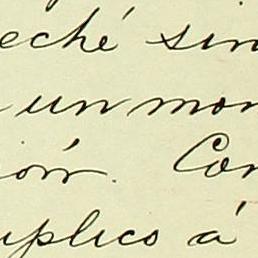 eché sin
un mon
ión. Con
uplico á